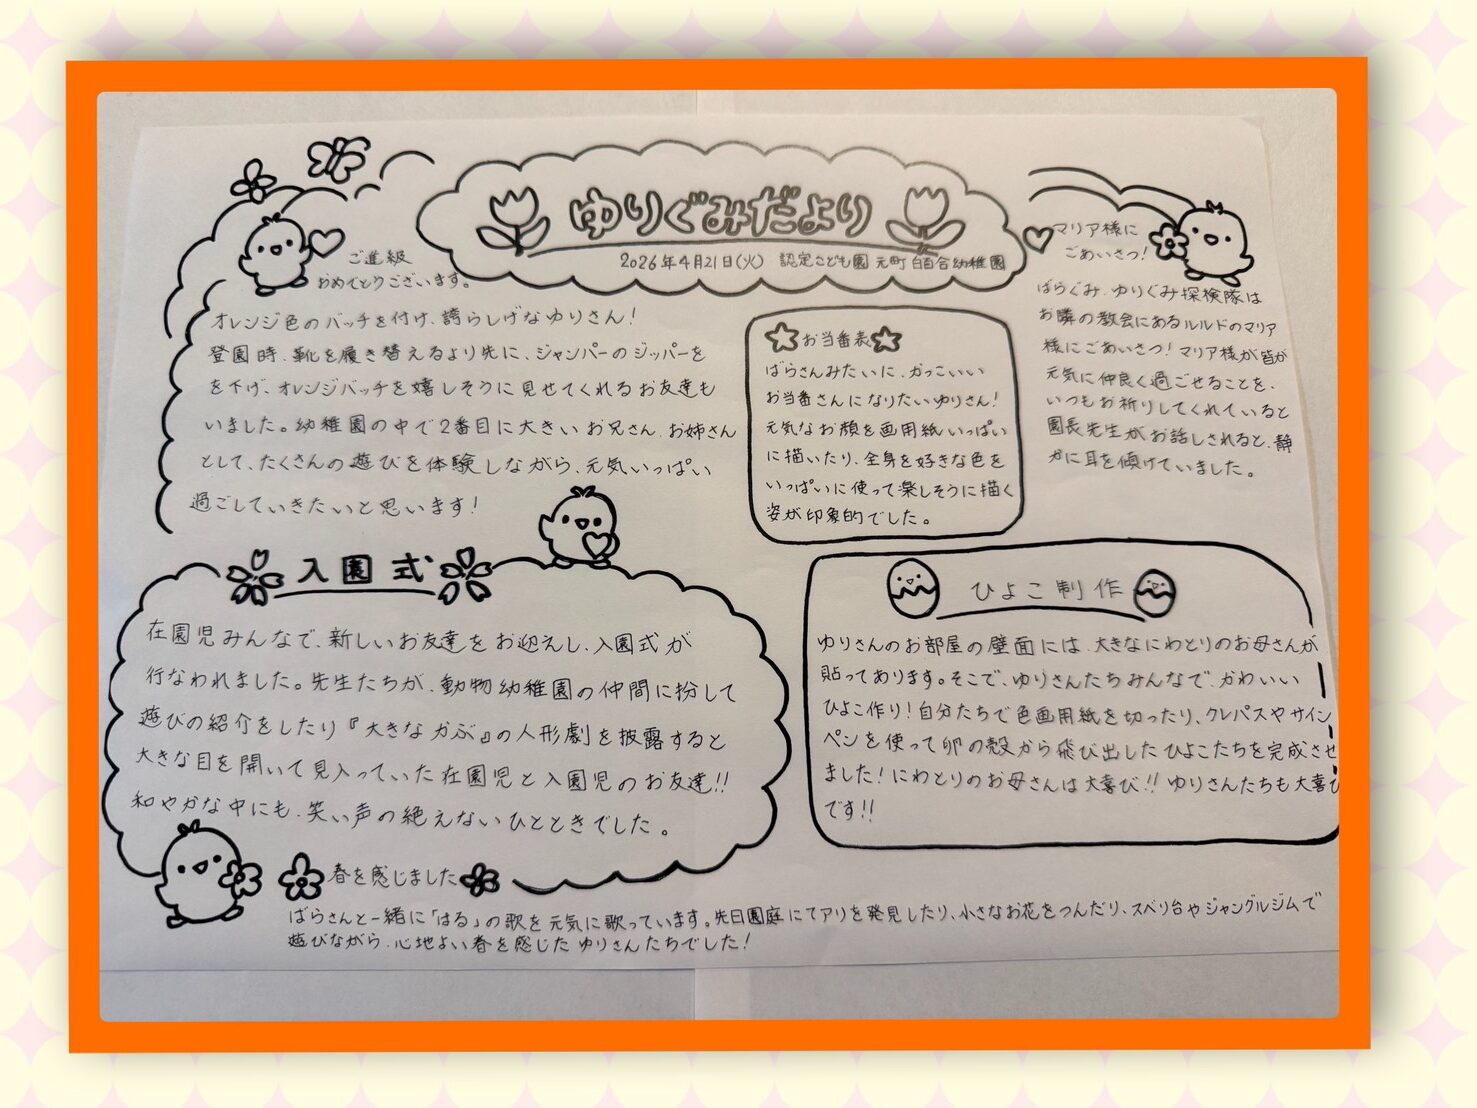 ゆりぐみだより
2026年4月21日(火) 認定こども園 元町白百合幼稚園
ご進級
おめでとうございます。
オレンジ色のバッチを付け、誇らしげなゆりさん!
登園時、靴を履き替えるより先に、ジャンパーのジッパーを
を下げ、オレンジバッチを嬉しそうに見せてくれるお友達も
いました。幼稚園の中で2番目に大きいお兄さん、お姉さん
として、たくさんの遊びを体験しながら、元気いっぱい
過ごしていきたいと思います!
お当番表
ばらさんみたいに、かっこいい
お当番さんになりたいゆりさん!
元気なお顔を画用紙いっぱい
に描いたり、全身を好きな色を
いっぱいに使って楽しそうに描く
姿が印象的でした。
マリア様に
ごあいさつ!
ばらぐみ、ゆりぐみ探検隊は
お隣の教会にあるルルドのマリア
様にごあいさつ!マリア様が皆が
元気に仲良く過ごせることを、
いつもお祈りしてくれていると
園長先生がお話しされると、静
かに耳を傾けていました。
入園式
在園児みんなで、新しいお友達をお迎えし、入園式が
行なわれました。先生たちが、動物幼稚園の仲間に扮して
遊びの紹介をしたり『大きなかぶ』の人形劇を披露すると
大きな目を開いて見入っていた在園児と入園児のお友達!!
和やかな中にも、笑い声の絶えないひとときでした。
ひよこ制作
ゆりさんのお部屋の壁面には、大きなにわとりのお母さんが
貼ってあります。そこで、ゆりさんたちみんなで、かわいい
ひよこ作り!自分たちで色画用紙を切ったり、クレパスやサイン
ペンを使って卵の殻から飛び出したひよこたちを完成させ
ました!にわとりのお母さんは大喜び!!ゆりさんたちも大喜び
です!!
春を感じました
ばらさんと一緒に「はる」の歌を元気に歌っています。先日園庭にてアリを発見したり、小さなお花をつんだり、スベリ台やジャングルジムで
遊びながら、心地よい春を感じたゆりさんたちでした!